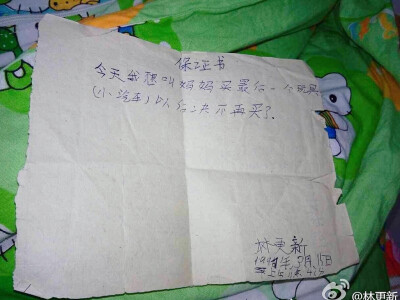 保证书
今天我想叫妈妈买最后一个玩具
(小汽车)以后决不再买了.
林更新
月15日
@林更新